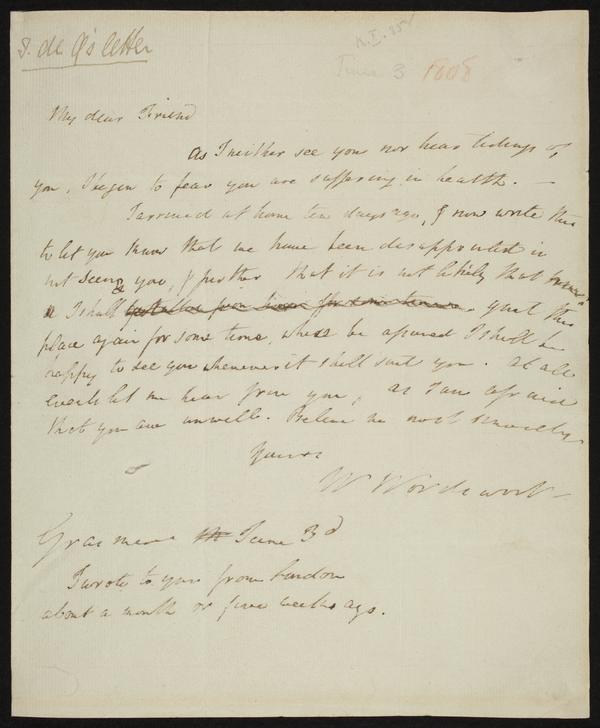 T. de Q's letter
June 3 1808
My dear Friend
As I neither see you nor hear tidings of
you, I begin to fear you are suffering in health. —
I arrived at home ten days ago, & now write this
to let you know that we have been disappointed in
not seeing you, & further that it is not likely that
I shall quit this
place again for some time, where be assured I shall be
happy to see you whenever it shall suit you. At all
events let me hear from you, as I am afraid
that you are unwell. Believe me most sincerely
Yours
W Wordsworth
Grasmere June 3d
I wrote to you from London
about a month or five weeks ago.